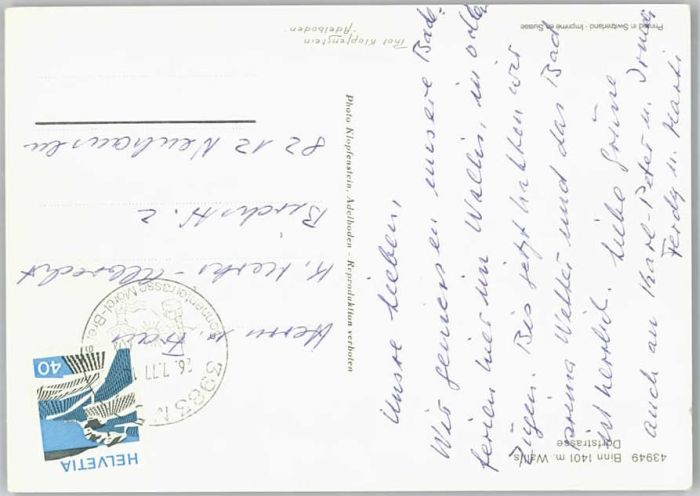 Unsre Lieben,
Wir geniessen unsere Bade-
ferien hier im Wallis, in vollen
Zügen. Bis jetzt hatten wir
prima Wetter und das Bad
ist herrlich. Liebe Grüsse
auch an Karl-Peter u.
Ferdy u. Marti
Herrn u. Frau
K. Merks-Albrecht
Birchstr. 2
8212 Neuhausen
Phot Klopfenstein
Adelboden
Photo Klopfenstein, Adelboden - Reproduktion verboten
Printed in Switzerland - Imprimé en Suisse
43949 Binn 1401 m. Wallis
Dorfstrasse
HELVETIA
40
3983
26.7.77
Sonnenterrasse Mörel-Bre